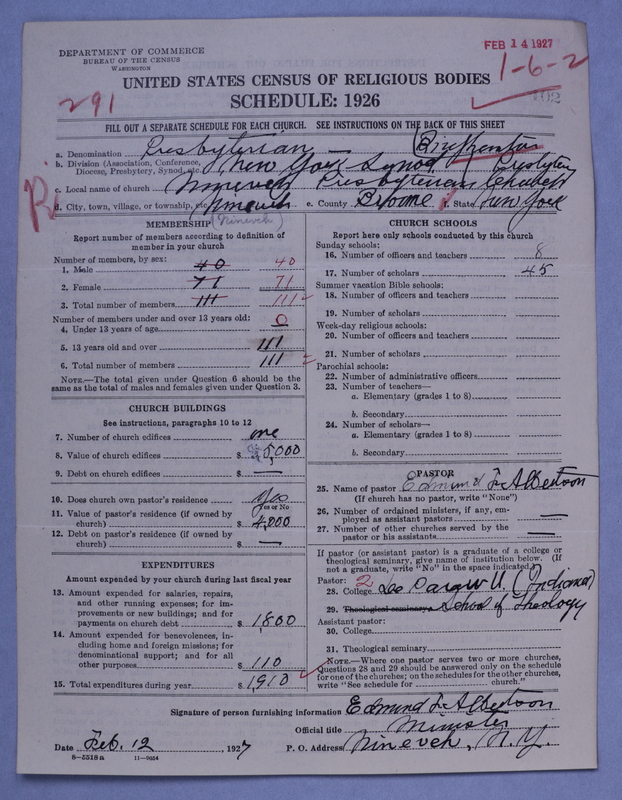 DEPARTMENT OF COMMERCE
BUREAU OF THE CENSUS
WASHINGTON
FEB 14 1927
1-6-2
102
291
UNITED STATES CENSUS OF RELIGIOUS BODIES
SCHEDULE: 1926
FILL OUT A SEPARATE SCHEDULE FOR EACH CHURCH. SEE INSTRUCTIONS ON THE BACK OF THIS SHEET
a. Denomination Presbyterian (Binghamton
b. Division (Association, Conference, Diocese, Presbytery, Synod, etc.) New York Synod Presbytery
c. Local name of church Nineveh Presbyterian Church
d. City, town, village, or township, etc. Nineveh e. County Broome f. State New York
(Nineveh)
MEMBERSHIP
Report number of members according to definition of member in your church
Number of members, by sex:
1. Male 40 40
2. Female 71 71
3. Total number of members 111 111
Number of members under and over 13 years old:
4. Under 13 years of age 0
5. 13 years old and over 111
6. Total number of members 111
NOTE.—The total given under Question 6 should be the same as the total of males and females given under Question 3.
CHURCH BUILDINGS
See instructions, paragraphs 10 to 12
7. Number of church edifices one
8. Value of church edifices $ 5,000
9. Debt on church edifices $ —
10. Does church own pastor's residence Yes
Yes or No
11. Value of pastor's residence (if owned by church) $ 4,000
12. Debt on pastor's residence (if owned by church) $ —
EXPENDITURES
Amount expended by your church during last fiscal year
13. Amount expended for salaries, repairs, and other running expenses; for improvements or new buildings; and for payments on church debt $ 1,800
14. Amount expended for benevolences, including home and foreign missions; for denominational support; and for all other purposes $ 110
15. Total expenditures during year $ 1910
CHURCH SCHOOLS
Report here only schools conducted by this church
Sunday schools:
16. Number of officers and teachers 8
17. Number of scholars 45
Summer vacation Bible schools:
18. Number of officers and teachers
19. Number of scholars
Week-day religious schools:
20. Number of officers and teachers
21. Number of scholars
Parochial schools:
22. Number of administrative officers
23. Number of teachers—
a. Elementary (grades 1 to 8)
b. Secondary
24. Number of scholars—
a. Elementary (grades 1 to 8)
b. Secondary
PASTOR
25. Name of pastor Edmund F. Albertson
(If church has no pastor, write "None")
26. Number of ordained ministers, if any, employed as assistant pastors —
27. Number of other churches served by the pastor or his assistants —
If pastor (or assistant pastor) is a graduate of a college or theological seminary, give name of institution below. (If not a graduate, write "No" in the space indicated.)
Pastor: 2
28. College De Pauw U. (Indiana)
29. Theological seminary School of Theology
Assistant pastor:
30. College
31. Theological seminary
NOTE.—Where one pastor serves two or more churches, Questions 28 and 29 should be answered only on the schedule for one of the churches; on the schedules for the other churches, write "See schedule for ........ church."
Signature of person furnishing information Edmund F. Albertson
Official title Minister
Date Feb. 12, 1927 P. O. Address Nineveh, N.Y.
8-5518a 11-9054